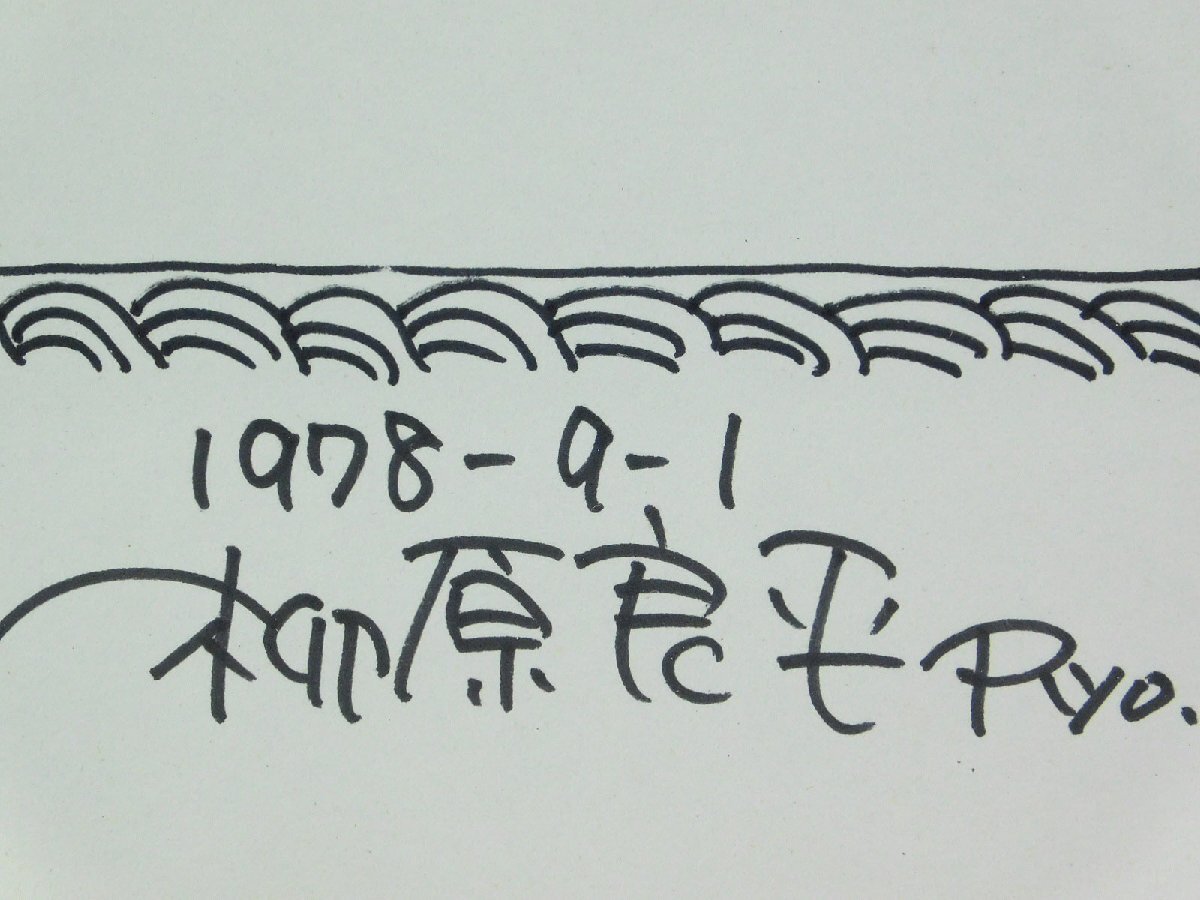 1978-9-1
柳原良平 Ryo.